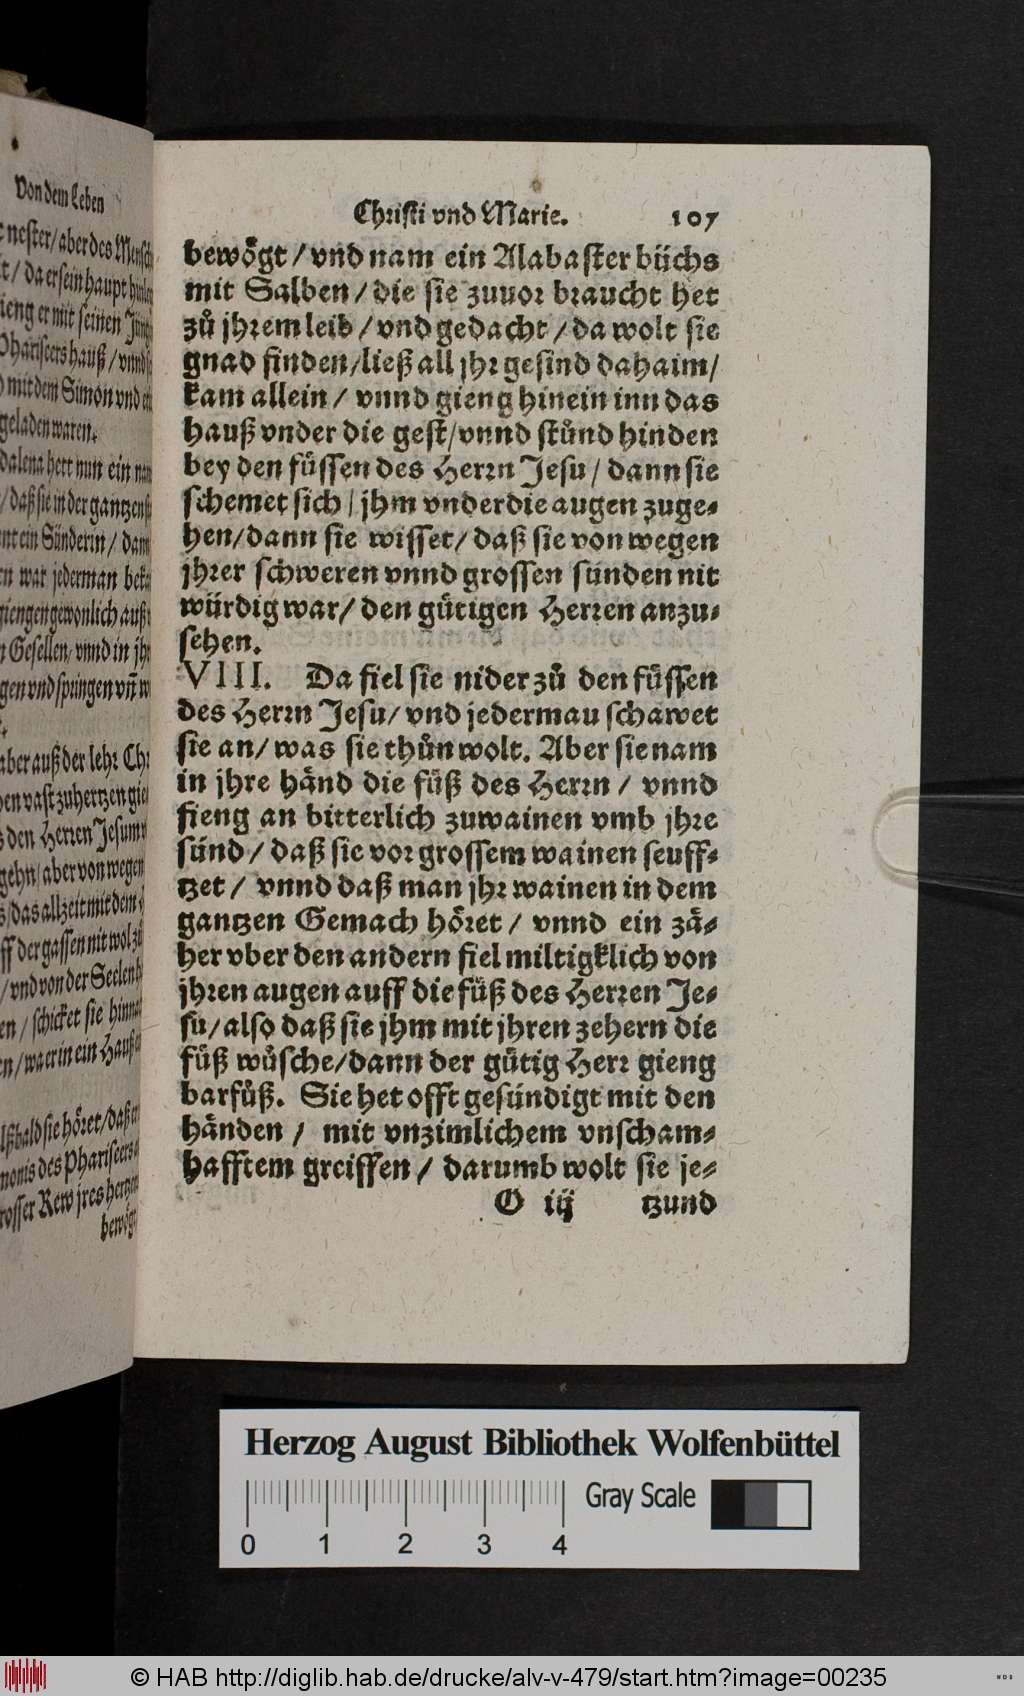 Von dem Leben
nester/ aber des Mensch
t/ da er sein haupt
gieng er mit seinen
Phariseers hauß/ vnnd
mit dem Simon vnd
geladen waren.
dalena hett nun ein
/ daß sie in der gantzen
ein Sünderin/ dann
war jederman
giengen gewonlich auß
Gesellen/ vnnd in
vnd springen vñ
aber auß der lehr
vast zuhertzen
den Herren Jesum
gehn/ aber von wegen
das allzeit mit dem
der gassen nit wol
/ vnd von der Seelen
/ schicket sie
/ wa er in ein Hauß
bald sie höret/ daß
monis des Phariseers
grosser Rew jres hertzen
bewögt
Christi vnd Marie. 107
bewögt/ vnd nam ein Alabaster büchs
mit Salben/ die sie zuuor braucht het
zů jhrem leib/ vnd gedacht/ da wolt sie
gnad finden/ ließ all jhr gesind dahaim/
kam allein/ vnnd gieng hinein inn das
hauß vnder die gest/ vnnd stůnd hinden
bey den füssen des Herrn Jesu/ dann sie
schemet sich/ jhm vnder die augen zuge-
hen/ dann sie wisset/ daß sie von wegen
jhrer schweren vnnd grossen sünden nit
würdig war/ den gütigen Herren anzu-
sehen.
VIII. Da fiel sie nider zů den füssen
des Herrn Jesu/ vnd jedermau schawet
sie an/ was sie thůn wolt. Aber sie nam
in jhre händ die füß des Herrn/ vnnd
fieng an bitterlich zuwainen vmb jhre
sünd/ daß sie vor grossem wainen seuff-
tzet/ vnnd daß man jhr wainen in dem
gantzen Gemach höret/ vnnd ein zä-
her vber den andern fiel miltigklich von
jhren augen auff die füß des Herren Je-
su/ also daß sie jhm mit jhren zehern die
füß wůsche/ dann der gütig Herr gieng
barfůß. Sie het offt gesündigt mit den
händen/ mit vnzimlichem vnscham-
hafftem greiffen/ darumb wolt sie je-
O iij tzund
Herzog August Bibliothek Wolfenbüttel
Gray Scale
0 1 2 3 4
© HAB http://diglib.hab.de/drucke/alv-v-479/start.htm?image=00235